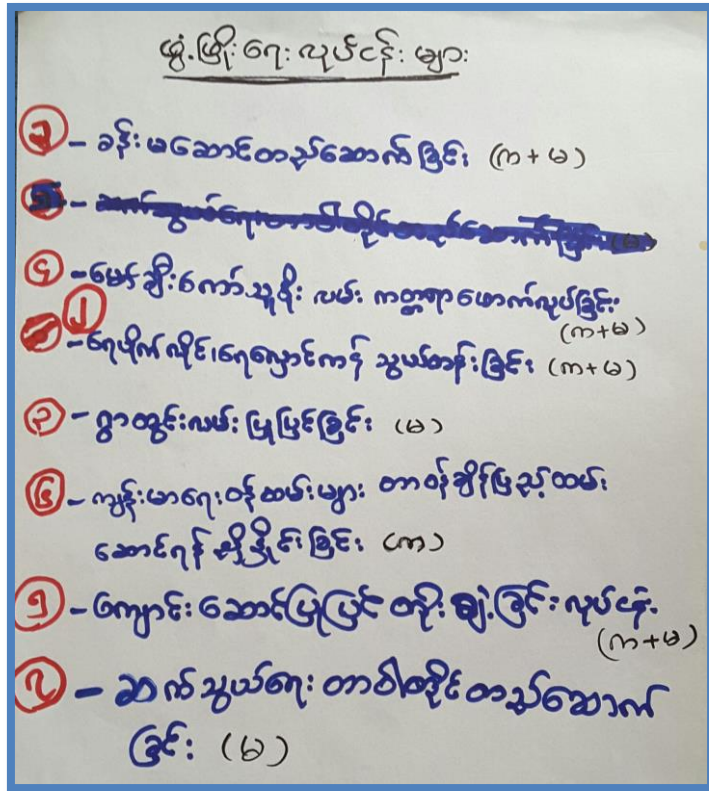 ဖွံ့ဖြိုးရေး လုပ်ငန်းများ
၁ - ခန်းမဆောင်တည်ဆောက်ခြင်း (က+မ)
၄ - မော်ချီးကော်သူဒိုး လမ်း ကတ္တရာဖောက်လုပ်ခြင်း
(က+မ)
၂ - ရေပိုက်လိုင်း၊ရေလှောင်ကန် သွယ်တန်းခြင်း (က+မ)
၃ - ရွာတွင်းလမ်း ပြုပြင်ခြင်း (မ)
၆ - ကျန်းမာရေးဝန်ထမ်းများ တာဝန်ချိန်ပြည့်ထမ်း
ဆောင်ရန် ညှိနှိုင်းခြင်း (က)
၅ - ကျောင်းဆောင်ပြုပြင် တိုးချဲ့ခြင်းလုပ်ငန်း
(က+မ)
၇ - ဆက်သွယ်ရေး တာဝါတိုင်တည်ဆောက်
ခြင်း (မ)